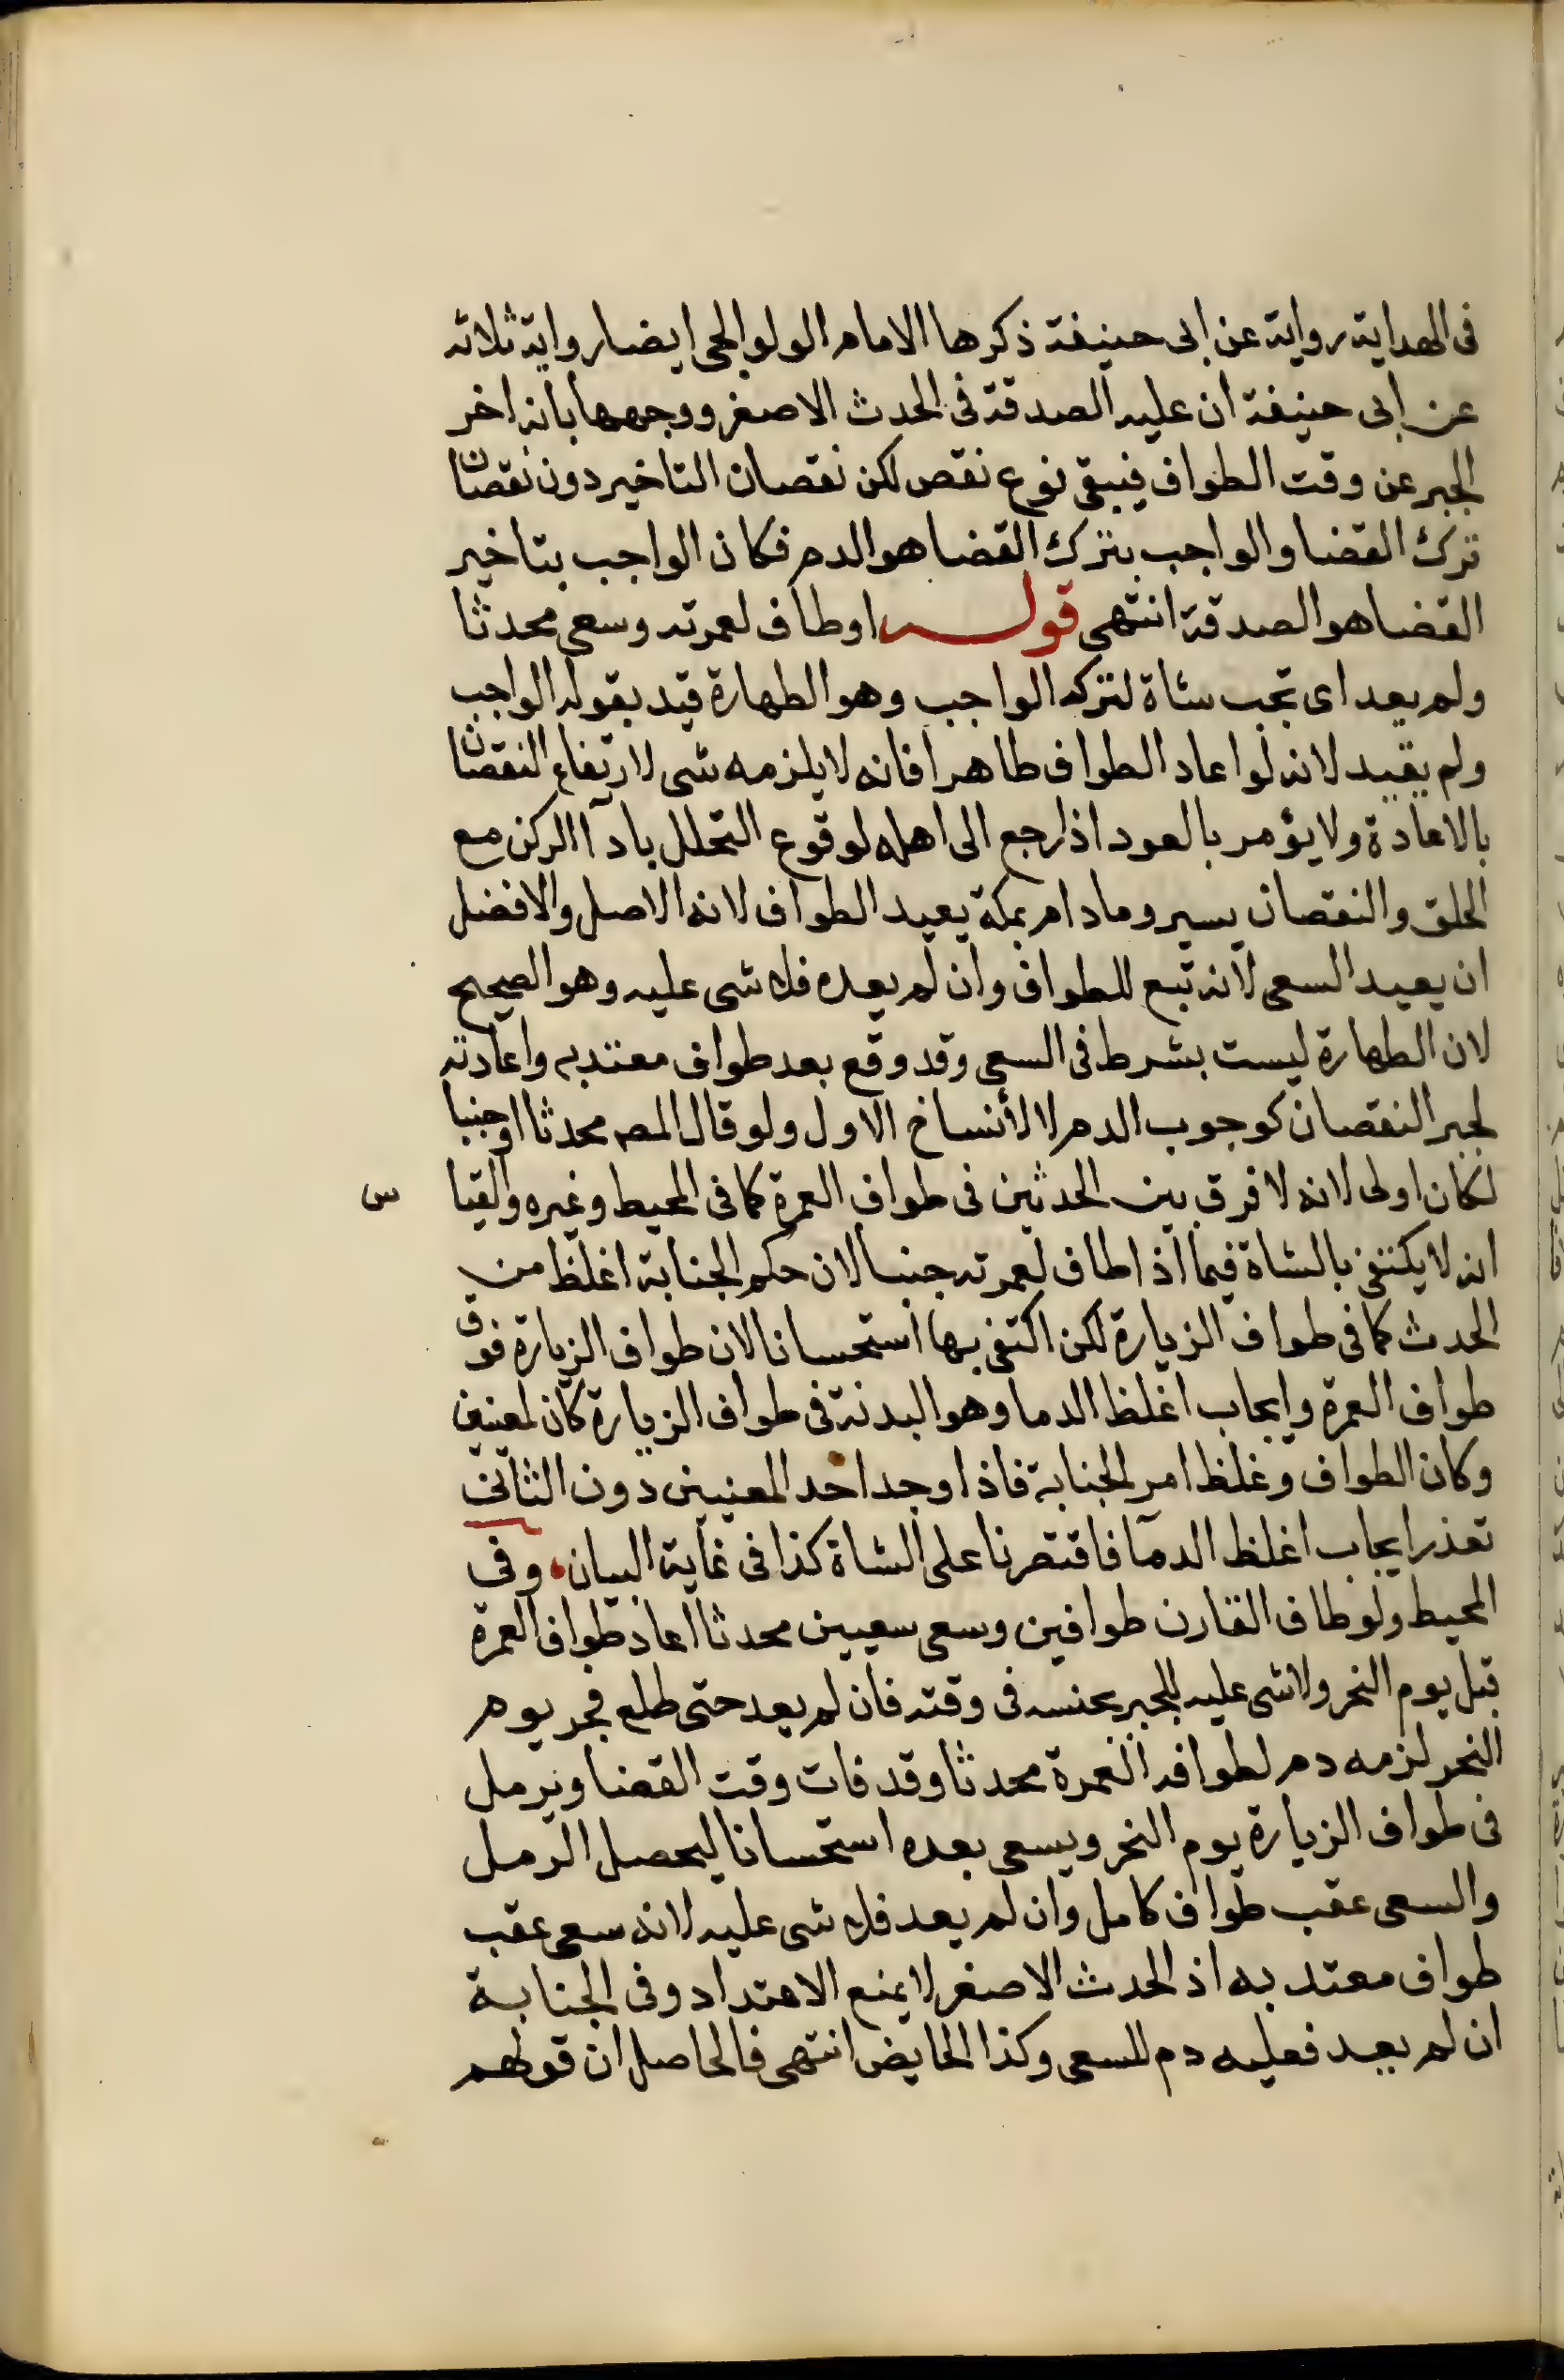 فى الهداية رواية عن ابى حنيفة ذكرها الامام الولوالجى ايضا رواية ثلاثه
عن ابى حنيفة ان عليه الصدقة فى الحدث الاصغر ووجهها بانه اخر
الجبر عن وقت الطواف فيبقى نوع نقص لكن نقصان التاخير دون نقصان
ترك القضا والواجب بترك القضا هو الدم فكان الواجب بتاخير
القضا هو الصدقة انتهى قوله اوطاف لعمرته وسعى محدثا
ولم يعد اى تجب شاة لتركه الواجب وهو الطهارة قيد بقوله الواجب
ولم يقيد لانه لو اعاد الطواف طاهرا فانه لا يلزمه شى لارتفاع النقصان
بالاعادة ولا يؤمر بالعود اذا رجع الى اهله لوقوع التحلل باداآ الركن مع
الحلق والنقصان يسير ومادام بمكة يعيد الطواف لانه الاصل والافضل
ان يعيد السعى لانه تبع للطواف وان لم يعده فلا شى عليه وهو الصحيح
لان الطهارة ليست بشرط فى السعى وقد وقع بعد طواف معتد به واعادته
لجبر النقصان كوجوب الدم لا لأنساخ الاول ولو قال المص محدثا اوجنبا
لكان اولى لانه لا فرق بين الحدثين فى طواف العمرة كما فى المحيط وغيره والقيا س
انه لا يكتفى بالشاة فيما اذا طاف لعمرته جنبا لان حكم الجنابة اغلظ من
الحدث كما فى طواف الزيارة لكن اكتفى بها استحسانا لان طواف الزيارة فوق
طواف العمرة وايجاب اغلظ الدما وهو البدنة فى طواف الزيارة كان لمعنيين
وكان الطواف وغلظ امر الجنابة فاذا وجد احد المعنيين دون الثانى
تعذر ايجاب اغلظ الدمآ فاقتصرنا على الشاة كذا فى غاية البيان وفى
المحيط ولو طاف القارن طوافين وسعى سعيين محدثا اعاد طواف العمرة
قبل يوم النحر ولا شى عليه للجبر بجنسه فى وقته فان لم يعد حتى طلع فجر يوم
النحر لزمه دم لطوافه العمرة محدثا وقد فات وقت القضا ويرمل
فى طواف الزيارة يوم النحر ويسعى بعده استحسانا ليحصل الرمل
والسعى عقب طواف كامل وان لم يعد فلا شى عليه لانه سعى عقب
طواف معتد به اذ الحدث الاصغر لا يمنع الاعتداد وفى الجنابة
ان لم يعد فعليه دم للسعى وكذا الحايض انتهى فالحاصل ان قولهم